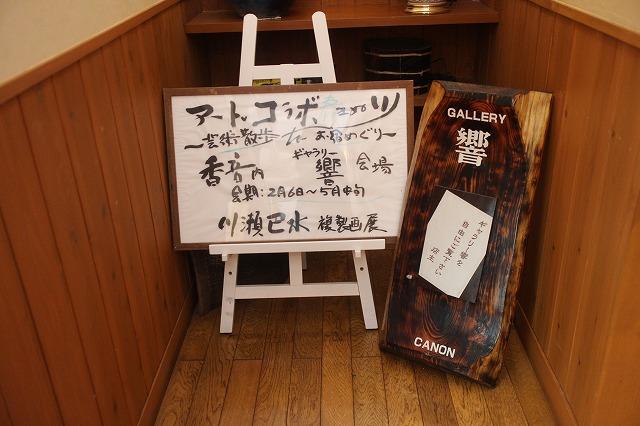 アート・コラボ
～芸術散歩 お宿めぐり～
香音内 ギャラリー 響 会場
会期:2月6日～5月中旬
川瀬巴水 複製画展
GALLERY
響
ギャラリー響を
自由にご覧下さい
店主
CANON